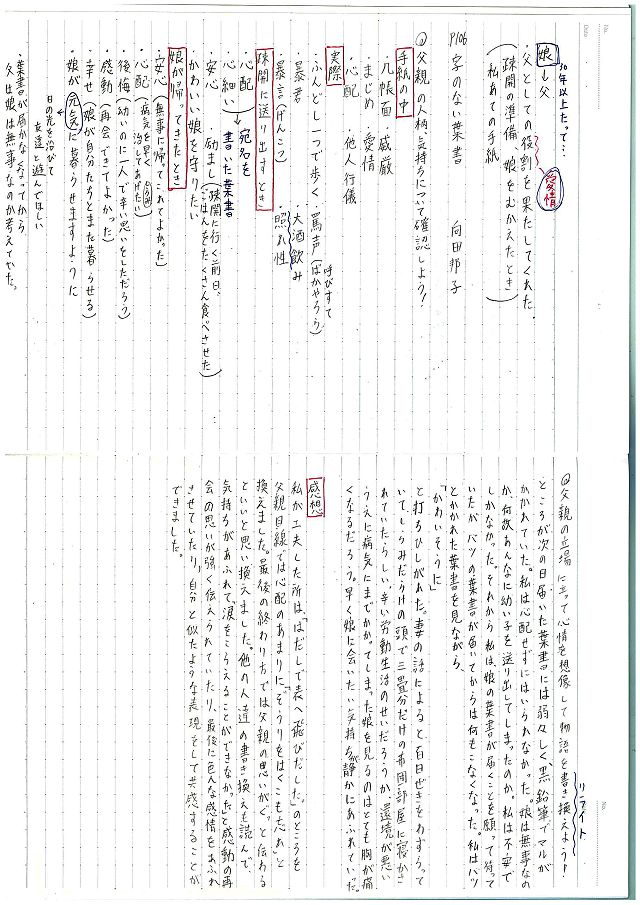 30年以上たって…
娘→父 愛情
・父としての役割を果たしてくれた。
(疎開の準備、娘をむかえたとき)
(私あての手紙)
P106 字のない葉書 向田邦子
◎父親の人柄、気持ちについて確認しよう!
手紙の中
几帳面・威厳
まじめ 愛情
・心配 ・他人行儀
実際
ふんどし一つで歩く
・罵声(ばかやろう) 呼びすて
・暴君 ・大酒飲み
・暴言(げんこつ) ・照れ性
疎開に送り出すとき
・心配 → 宛名を
心細い 書いた葉書
・安心 ・励まし(疎開に行く前日、
ごはんをたくさん食べさせた)
かわいい娘を守りたい
娘が帰ってきたとき
・安心(無事に帰ってこれてよかった)
・心配(病気を早く治してあげたい)
後悔(幼いのに一人で辛い思いをしただろう)
感動(再会できてよかった)
・幸せ(娘が自分たちとまた暮らせる)
・娘が元気に暮らせますように
日の光を浴びて
友達と遊んでほしい
・葉書が届かなくなってから
父は娘は無事なのか考えていた。
◎父親の立場に立って心情を想像して物語を書き換えよう! リライト
ところが次の日届いた葉書には弱々しく、黒鉛筆でマルが
かかれていた。私は心配せずにはいられなかった。娘は無事なの
か、何故あんなに幼い子を送り出してしまったのか。私は不安で
しかなかった。それから私は、娘の葉書が届くことを願って待って
いたが、バツの葉書が届いてからは何もこなくなった。私はバツ
とかかれた葉書を見ながら、
「かわいそうに」
と打ちひしがれた。妻の話によると、百日ぜきをわずらって
いて、しらみだらけの頭で三畳分だけの布団部屋に寝かさ
れていたらしい。辛い労働生活のせいだろうか、環境が悪い
うえに病気にまでかかってしまった娘を見るのはとても胸が痛
くなるだろう。早く娘に会いたい気持ちが静かにあふれていた。
感想
私が工夫した所は、「はだしで表へ飛びだした」のところを
父親目線では心配のあまりに、「ぞうりをはくことも忘れ」と
換えました。最後の終わり方では父親の思いがぐっと伝わる
といいと思い換えました。他の人達の書き換えも読んで、
気持ちがあふれて、涙をこらえることができなかったと感動の再
会の思いが強く伝えられていたり、最後に色んな感情をあふれ
させていたり、自分と似たような表現をして共感することが
できました。